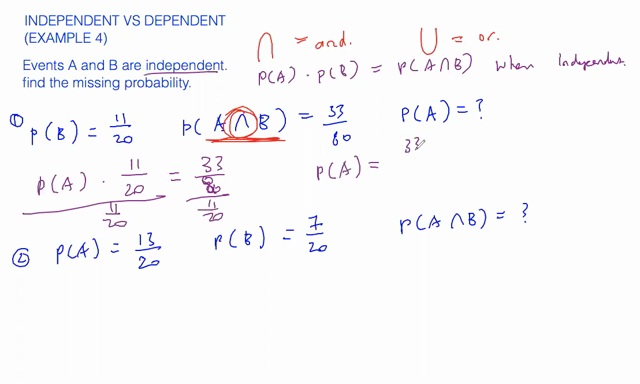 INDEPENDENT VS DEPENDENT
(EXAMPLE 4)
∩ = and. ∪ = or.
Events A and B are independent.
find the missing probability.
P(A) · P(B) = P(A∩B) when
① P(B) = 11/20 P(A∩B) = 33/80 P(A) = ?
P(A) · 11/20 / 11/20 = 33/80 / 11/20 P(A) = 33
② P(A) = 13/20 P(B) = 7/20 P(A∩B) = ?